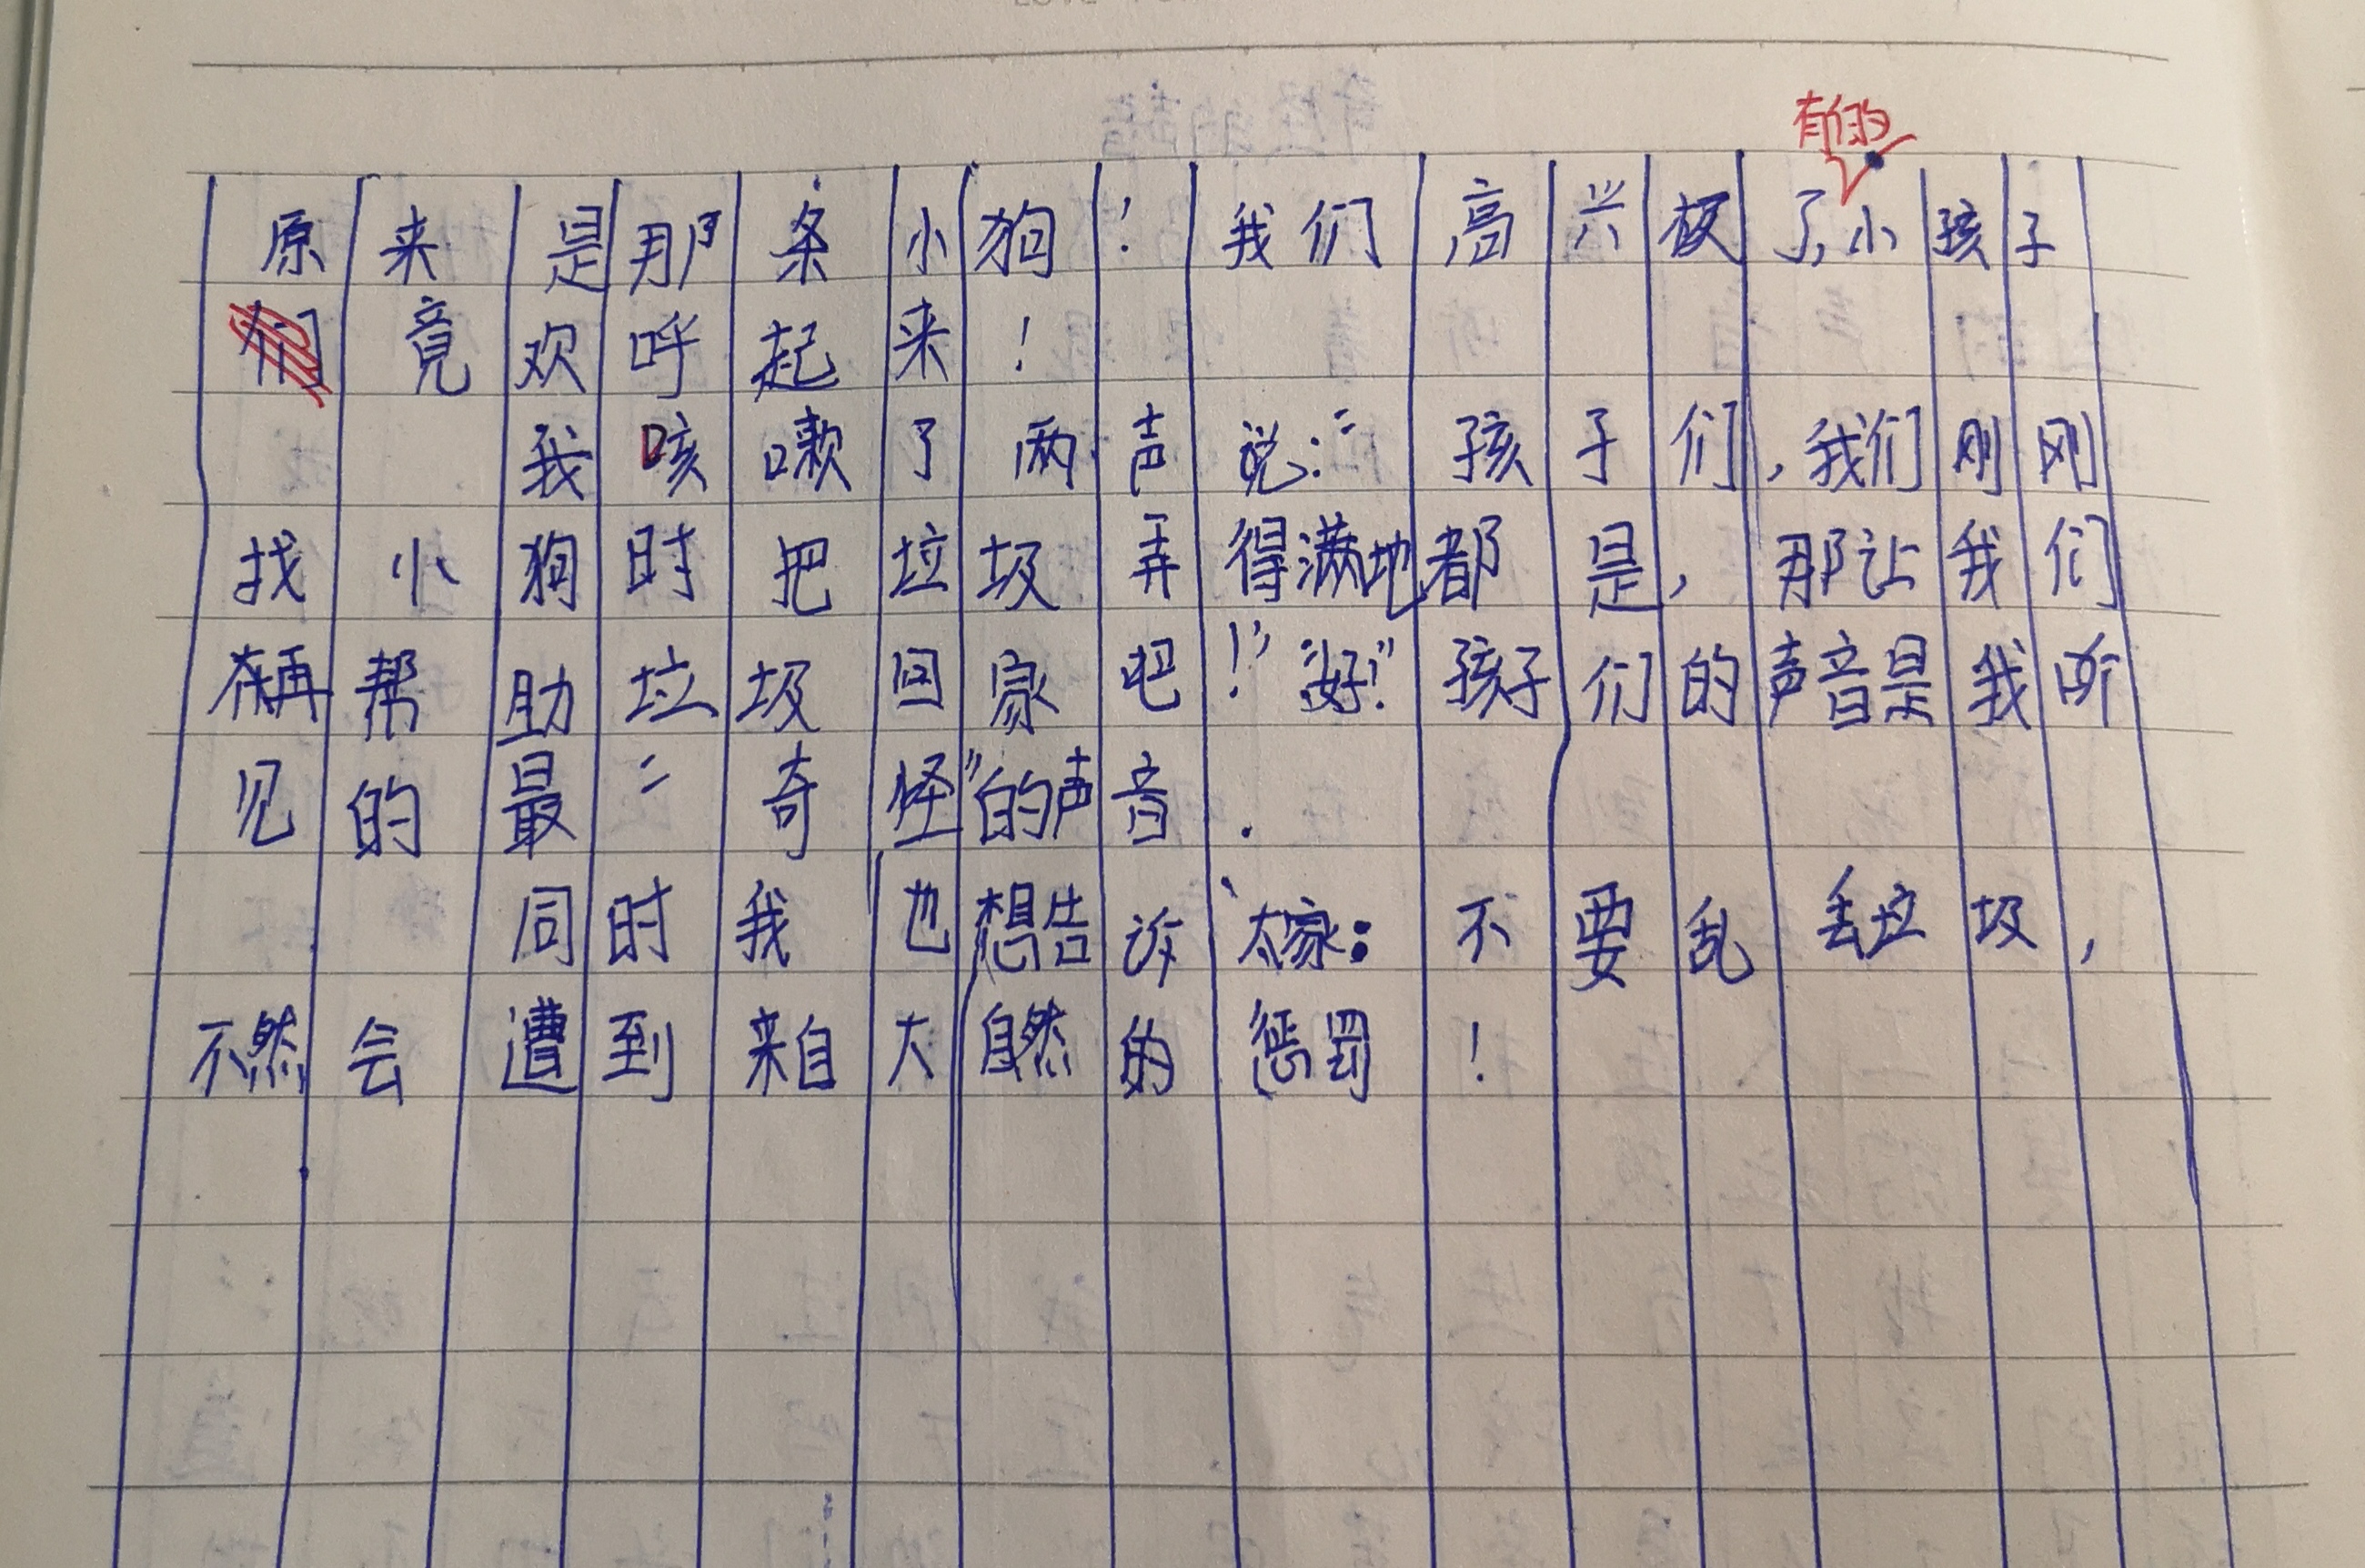 有的
原来是那条小狗！我们高兴极了，小孩子
们竟欢呼起来！
我咳嗽了两声说：“孩子们，我们刚刚
找小狗时把垃圾弄得满地都是，那让我们
再帮助垃圾回家吧！”“好！”孩子们的声音是我听
见的最“奇怪”的声音.
同时我也想告诉大家：不要乱丢垃圾，
不然会遭到来自大自然的惩罚！